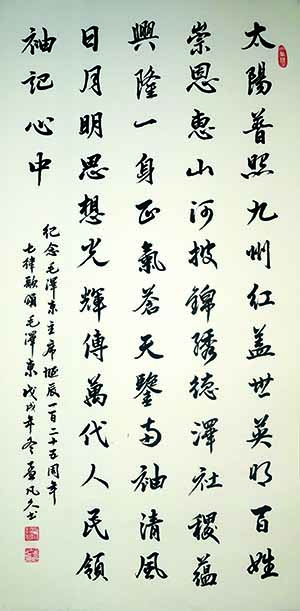 太陽普照九州紅蓋世英明百姓
崇恩惠山河披錦綉德澤社稷蘊
興隆一身正氣蒼天鑒兩袖清風
日月明思想光輝傳萬代人民領
袖記心中
紀念毛澤東主席誕辰一百二十五周年
七律歌頌毛澤東戊戌年冬凡久书